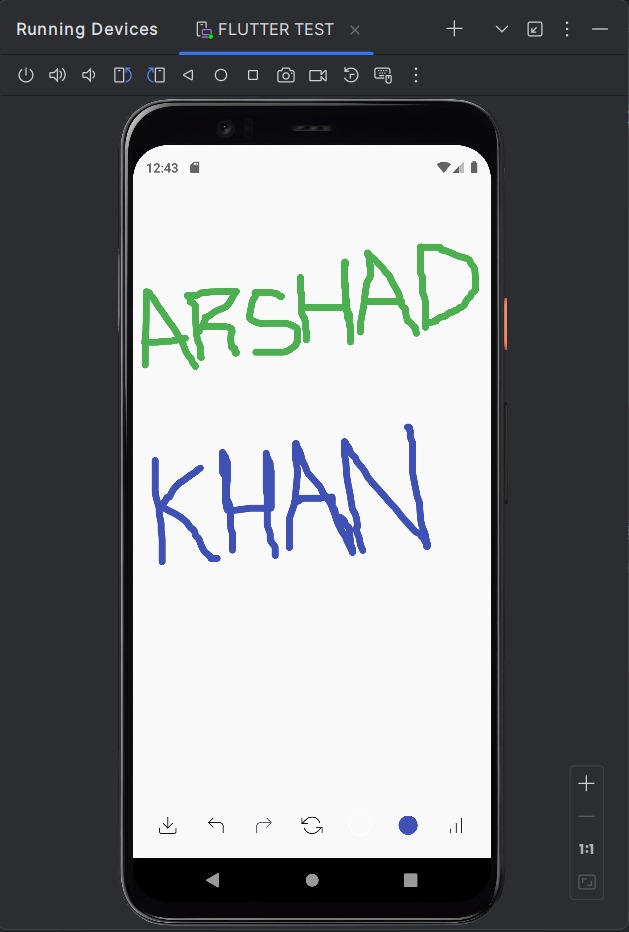 Running Devices FLUTTER TEST
12:43
ARSHAD
KHAN
1:1